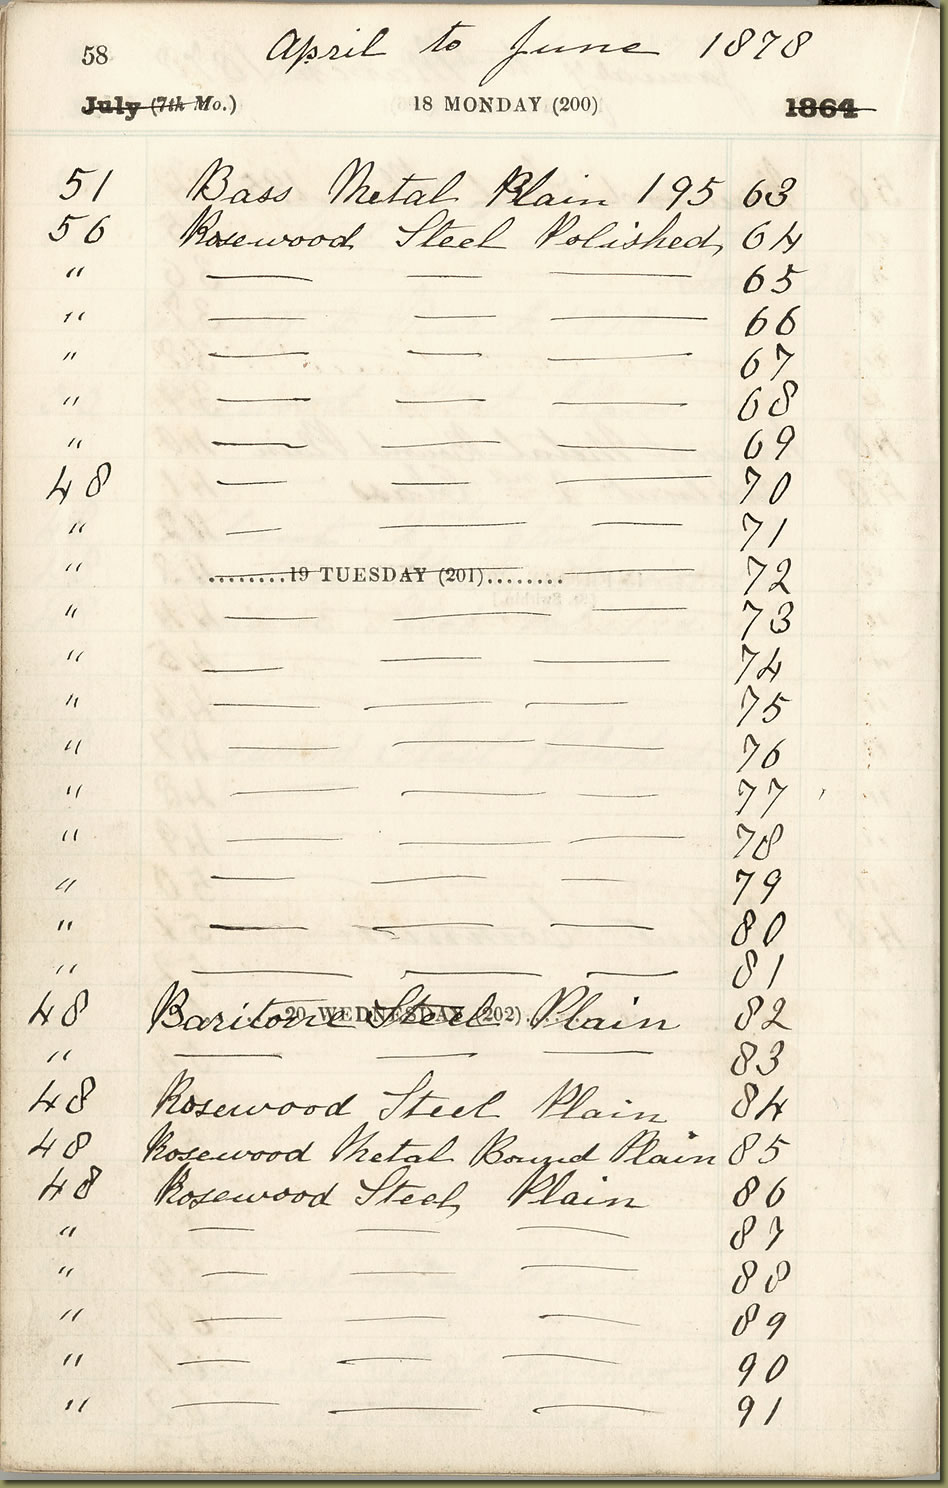 58 April to June 1878
July (7th Mo.) 18 MONDAY (200) 1864
51 Bass Metal Plain 195 63
56 Rosewood Steel Polished 64
" — — — 65
" — — — 66
" — — — 67
" — — — 68
" — — — 69
48 — — — 70
" — — — 71
" — — — 72
........19 TUESDAY (201)........
" — — — 73
" — — — 74
" — — — 75
" — — — 76
" — — — 77
" — — — 78
" — — — 79
" — — — 80
" — — — 81
20 WEDNESDAY (202)
48 Baritone Steel Plain 82
" — — — 83
48 Rosewood Steel Plain 84
48 Rosewood Metal Bound Plain 85
48 Rosewood Steel Plain 86
" — — — 87
" — — — 88
" — — — 89
" — — — 90
" — — — 91